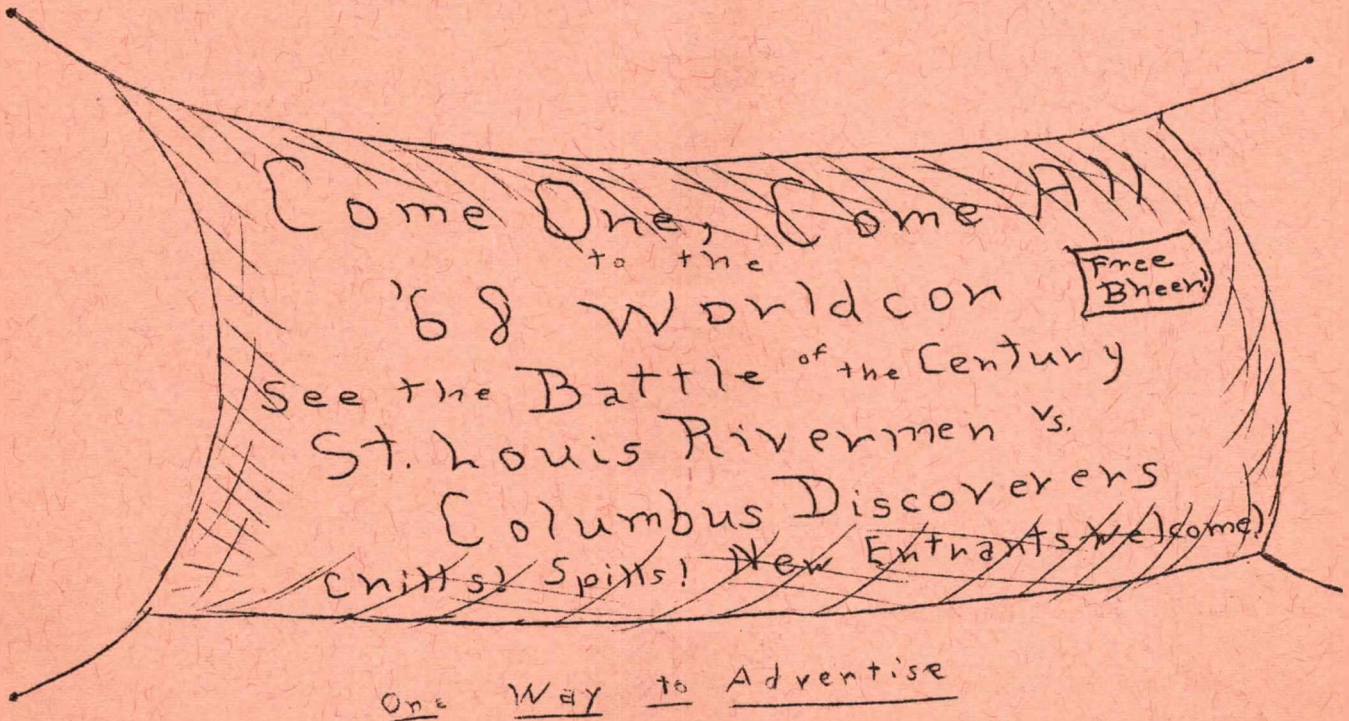 Come One, Come All
to the
'68 Worldcon
Free
Bheer!
See the Battle of the Century
St. Louis Rivermen vs.
Columbus Discoverers
Chills! Spills! New Entrants Welcome!
One Way to Advertise